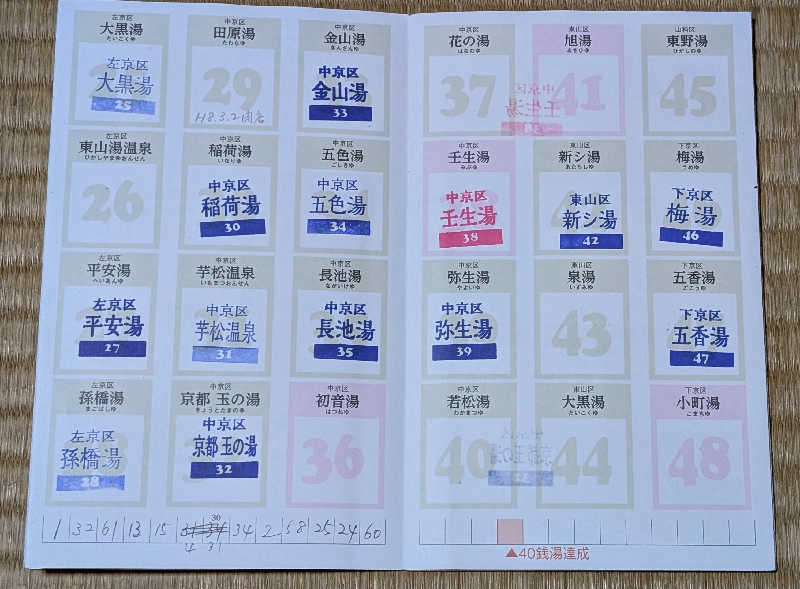 左京区
大黒湯
だいこくゆ
左京区
大黒湯
25
中京区
田原湯
たわらゆ
29
H8.3.2閉店
中京区
金山湯
きんざんゆ
中京区
金山湯
33
左京区
東山湯温泉
ひがしやまゆおんせん
26
中京区
稲荷湯
いなりゆ
中京区
稲荷湯
30
中京区
五色湯
ごしきゆ
中京区
五色湯
34
左京区
平安湯
へいあんゆ
左京区
平安湯
27
中京区
芋松温泉
いもまつおんせん
中京区
芋松温泉
31
中京区
長池湯
ながいけゆ
中京区
長池湯
35
左京区
孫橋湯
まごはしゆ
左京区
孫橋湯
28
中京区
京都 玉の湯
きょうとたまのゆ
中京区
京都 玉の湯
32
中京区
初音湯
はつねゆ
36
30
1 32 61 13 15 34 2 58 25 24 60
31
中京区
花の湯
はなのゆ
37
東山区
旭湯
あさひゆ
41
中京区
壬生湯
38
山科区
東野湯
ひがしのゆ
45
中京区
壬生湯
みぶゆ
中京区
壬生湯
38
東山区
新シ湯
あたらしゆ
東山区
新シ湯
42
下京区
梅湯
うめゆ
下京区
梅湯
46
中京区
弥生湯
やよいゆ
中京区
弥生湯
39
東山区
泉湯
いずみゆ
43
下京区
五香湯
ごこうゆ
下京区
五香湯
47
中京区
若松湯
わかまつゆ
40
東山区
大黒湯
だいこくゆ
44
中京区
京都 玉の湯
32
下京区
小町湯
こまちゆ
48
▲40銭湯達成